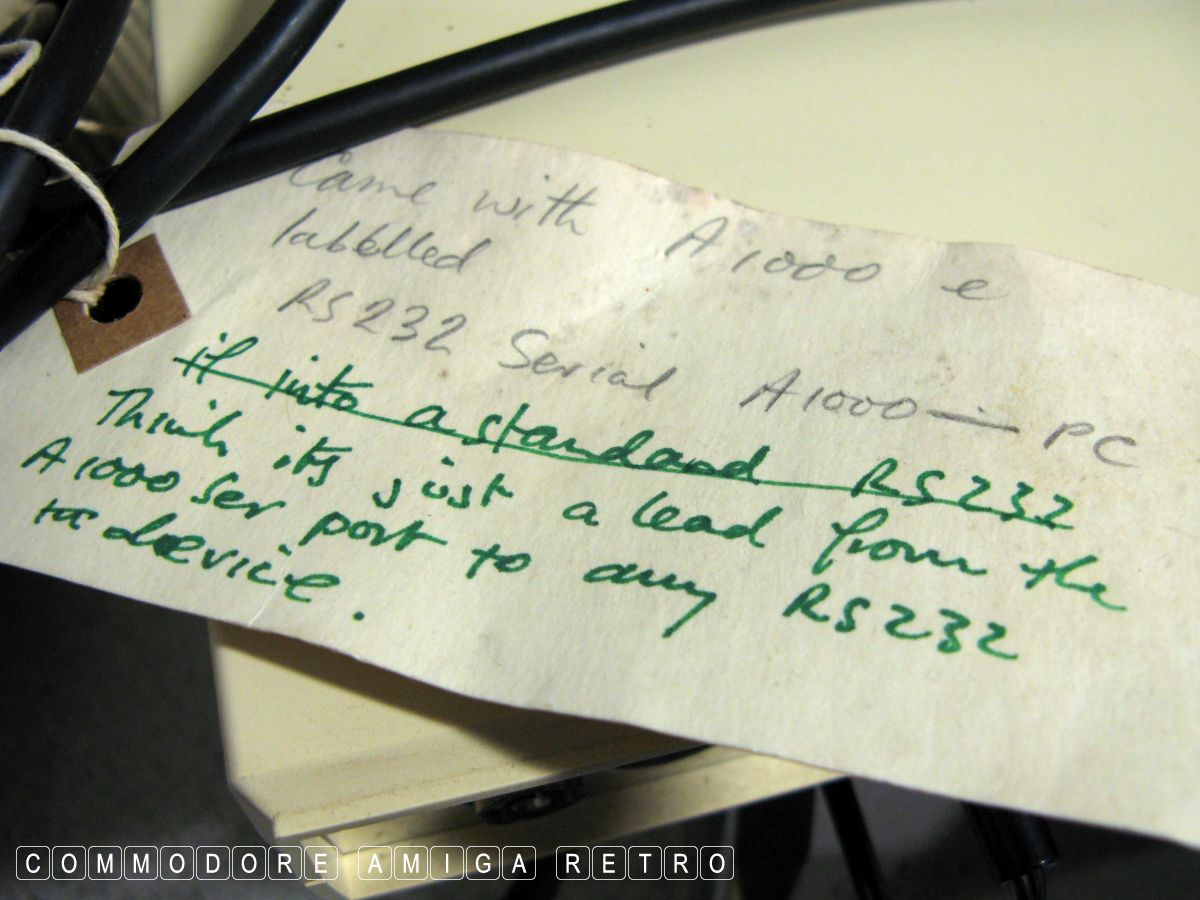 Came with A1000 e
labblled
RS232 Serial A1000 — PC
if into a standard RS232
Think its just a lead from the
A1000 ser port to any RS232
device.
COMMODORE AMIGA RETRO